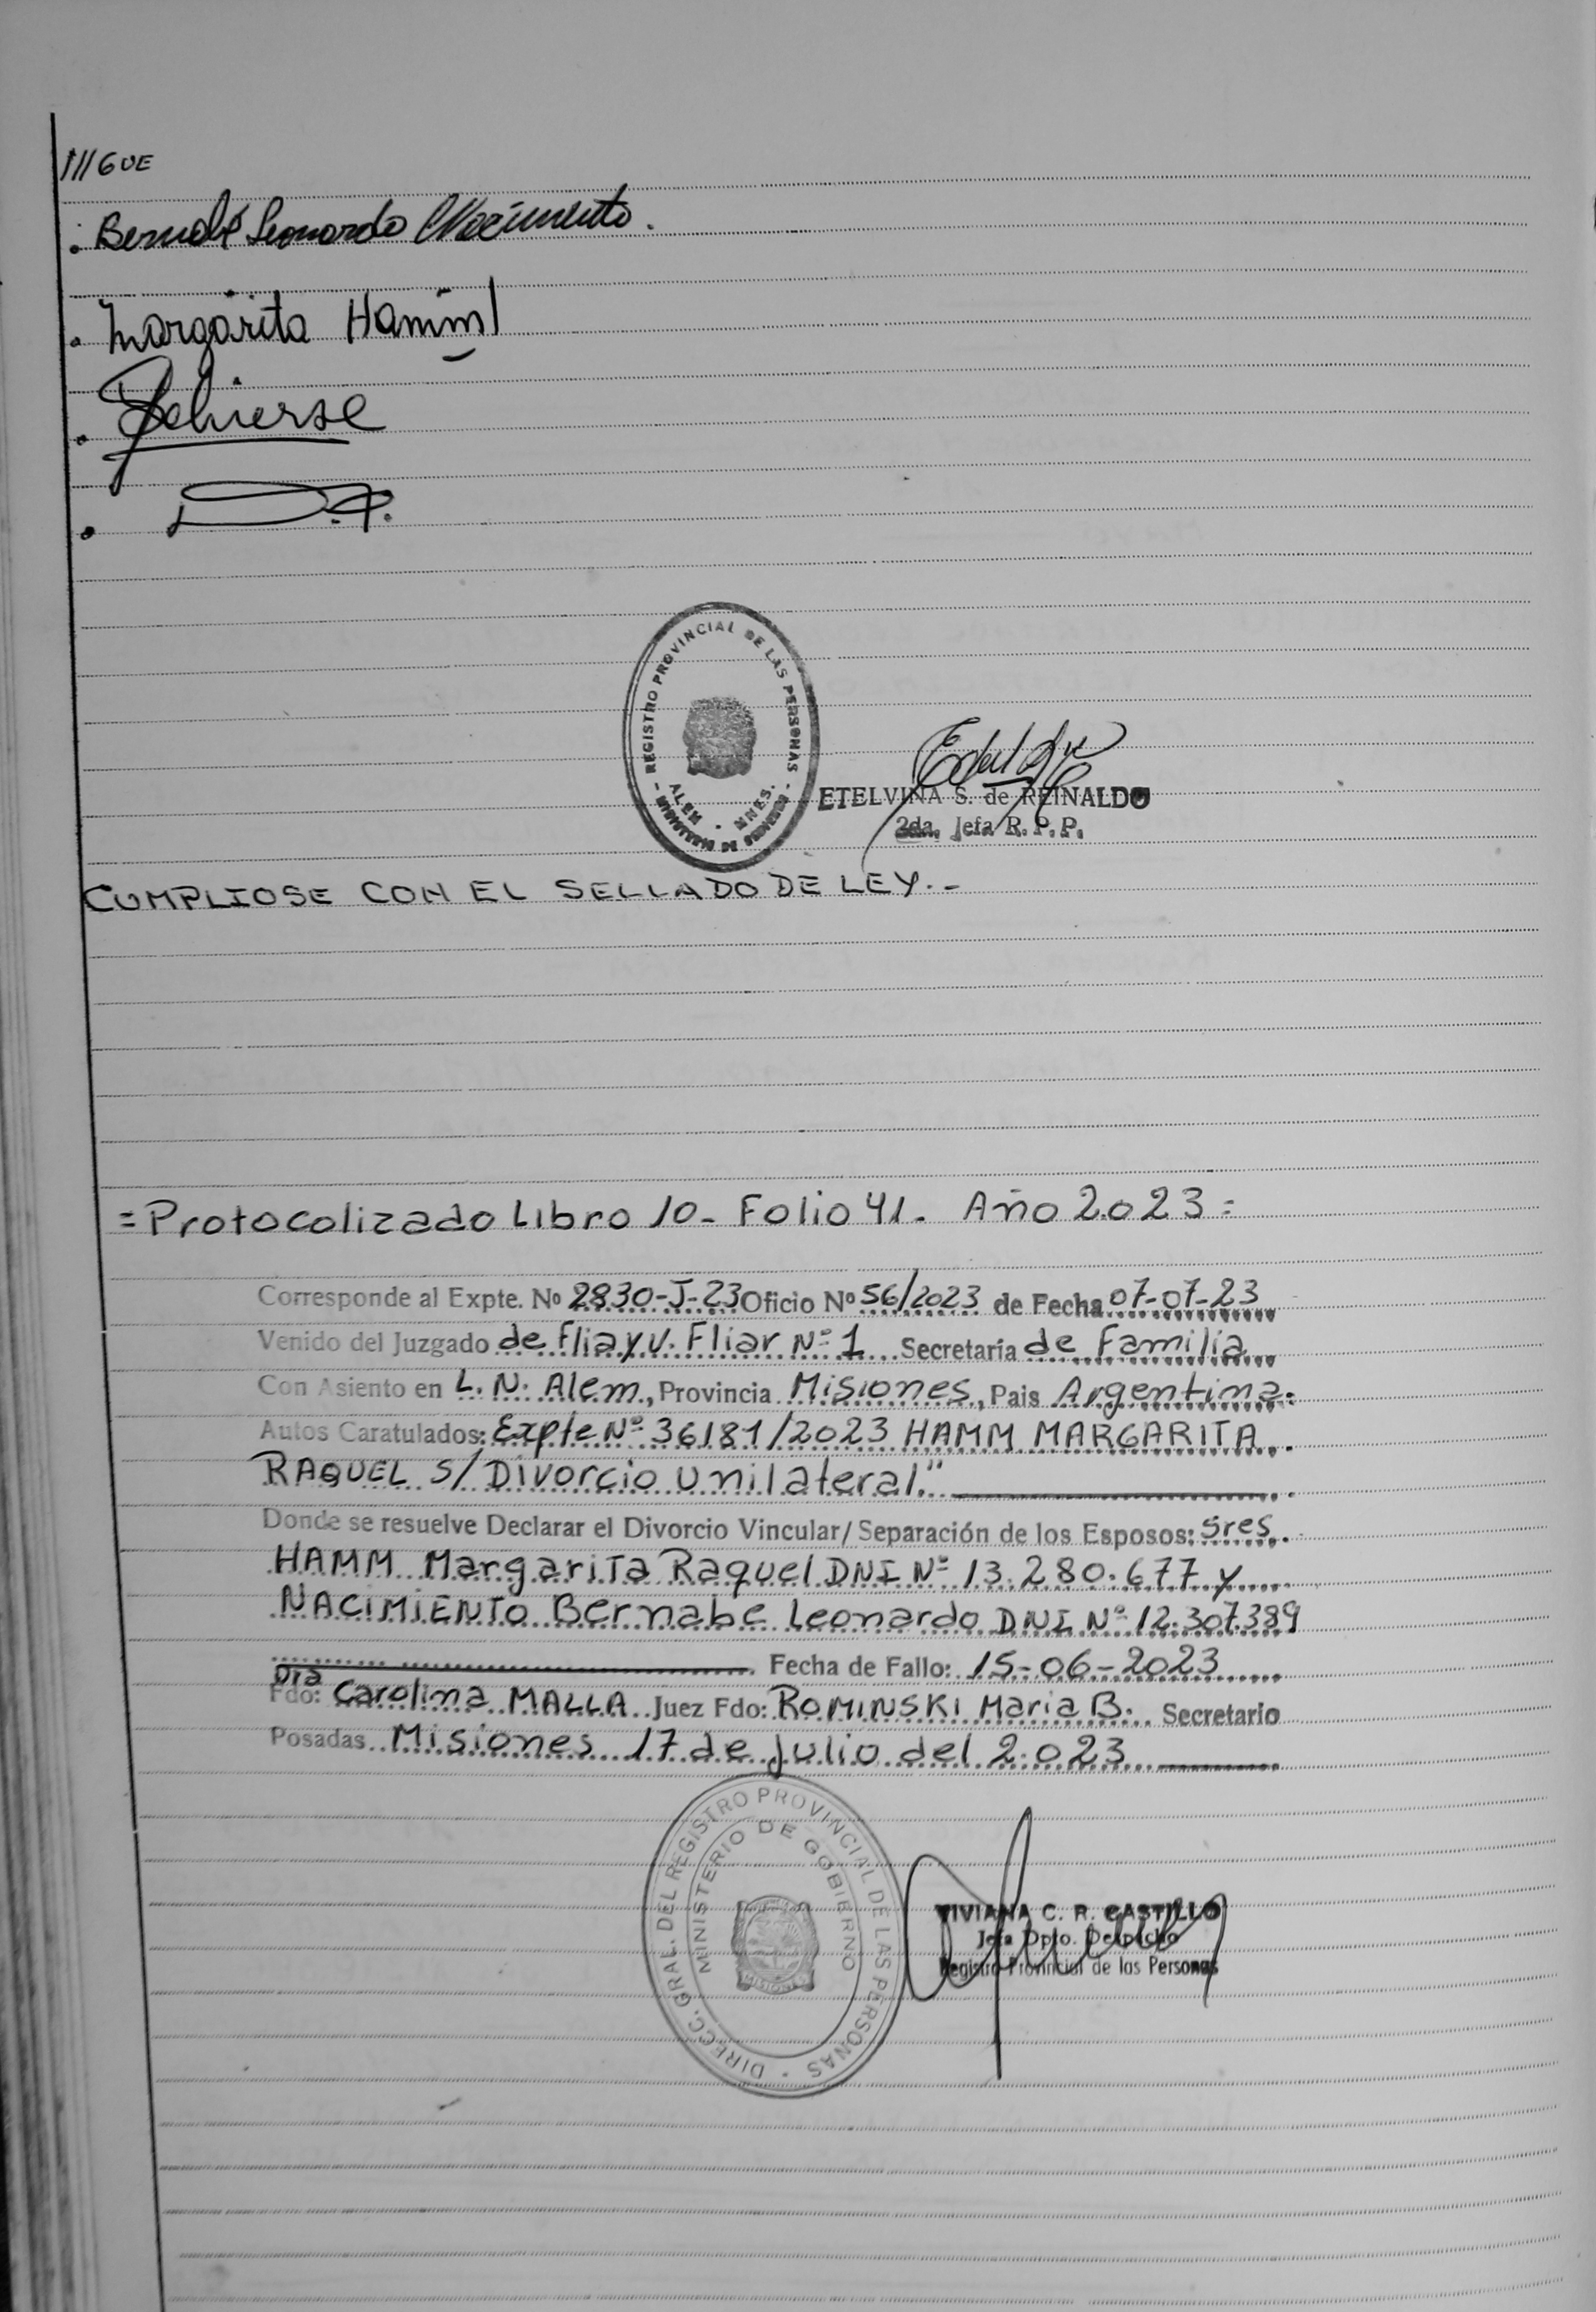 ///GUE
. Bernabé Leonardo Nacimiento.
. Margarita Hamm
.
. D.F.
REGISTRO PROVINCIAL DE LAS PERSONAS
ALEM - MNES.
MINISTERIO DE GOBIERNO
ETELVINA S. de REINALDO
2da. Jefa R. P. P.
CUMPLIOSE CON EL SELLADO DE LEY.-
= Protocolizado Libro 10- Folio 41- Año 2.023 =
Corresponde al Expte. Nº 2830-J-23 Oficio Nº 56/2023 de Fecha 07-07-23
Venido del Juzgado de Flia y V. Fliar Nº 1 Secretaría de Familia
Con Asiento en L. N. Alem, Provincia Misiones, Pais Argentina.
Autos Caratulados: Expte Nº 36181/2023 HAMM MARGARITA
RAQUEL S/ Divorcio Unilateral."
Donde se resuelve Declarar el Divorcio Vincular/Separación de los Esposos: Sres.
HAMM Margarita Raquel DNI Nº 13.280.677 y
NACIMIENTO Bernabe Leonardo DNI Nº 12.307.389
Fecha de Fallo: 15-06-2023
Dra
Fdo: Carolina MALLA Juez Fdo: ROMINSKI Maria B. Secretario
Posadas Misiones 17 de Julio del 2.023
DIRECC. GRAL. DEL REGISTRO PROVINCIAL DE LAS PERSONAS
MINISTERIO DE GOBIERNO
VIVIANA C. R. CASTILLO
Jefa Dpto. Despacho
Registro Provincial de las Personas